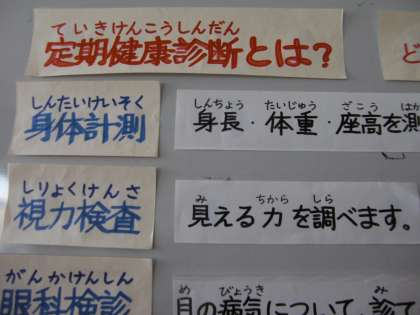 ていきけんこうしんだん
定期健康診断とは？
しんたいけいそく
身体計測
しんちょう たいじゅう ざこう はか
身長・体重・座高を測
しりょくけんさ
視力検査
み ちから しら
見える力を調べます。
がんかけんしん
眼科検診
め びょうき み
目の病気について、診て
ど